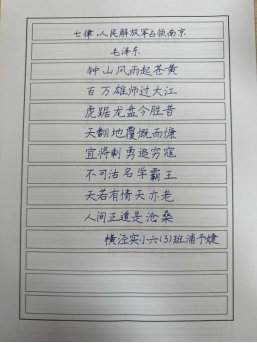 七律·人民解放军占领南京
毛泽东
钟山风雨起苍黄
百万雄师过大江
虎踞龙盘今胜昔
天翻地覆慨而慷
宜将剩勇追穷寇
不可沽名学霸王
天若有情天亦老
人间正道是沧桑
横泾实小六(3)班浦予婕